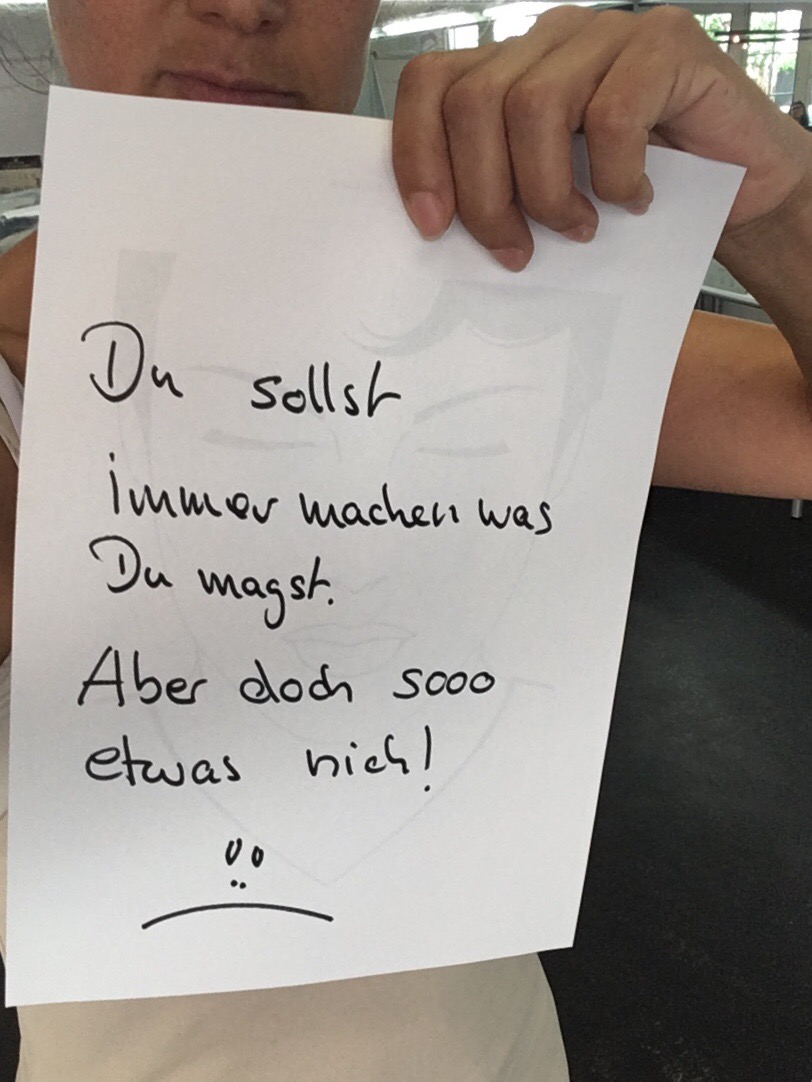 Du sollst
immer machen was
Du magst.
Aber doch sooo
etwas nich!